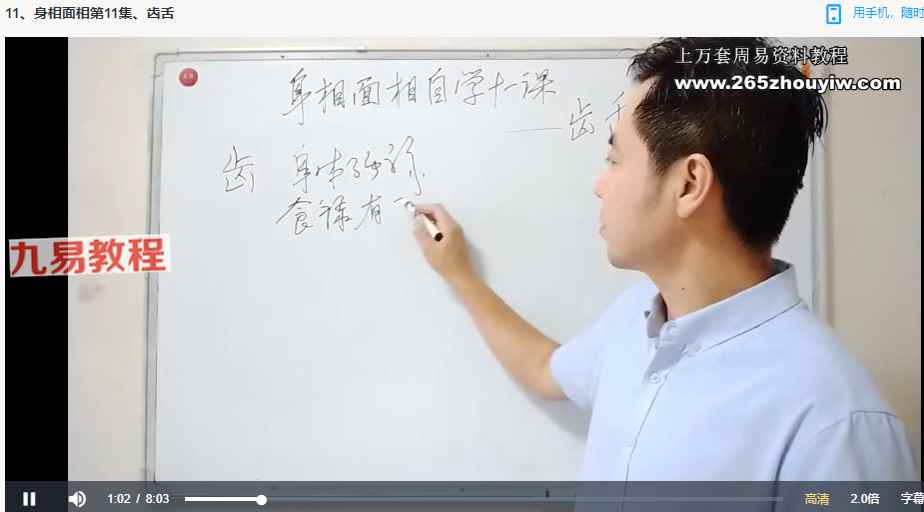 11、身相面相第11集、齿舌
用手机，随时
上万套周易资料教程
www.265zhouyiw.com
身相面相自学十一课
——齿舌
齿 身体强弱
食禄有
九易教程
1:02 / 8:03
高清 2.0倍 字幕